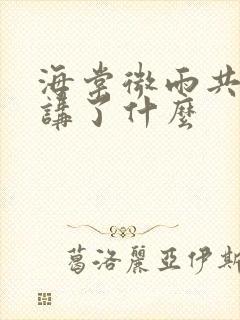 海棠微雨共
講了什麼
葛洛麗亞伊斯